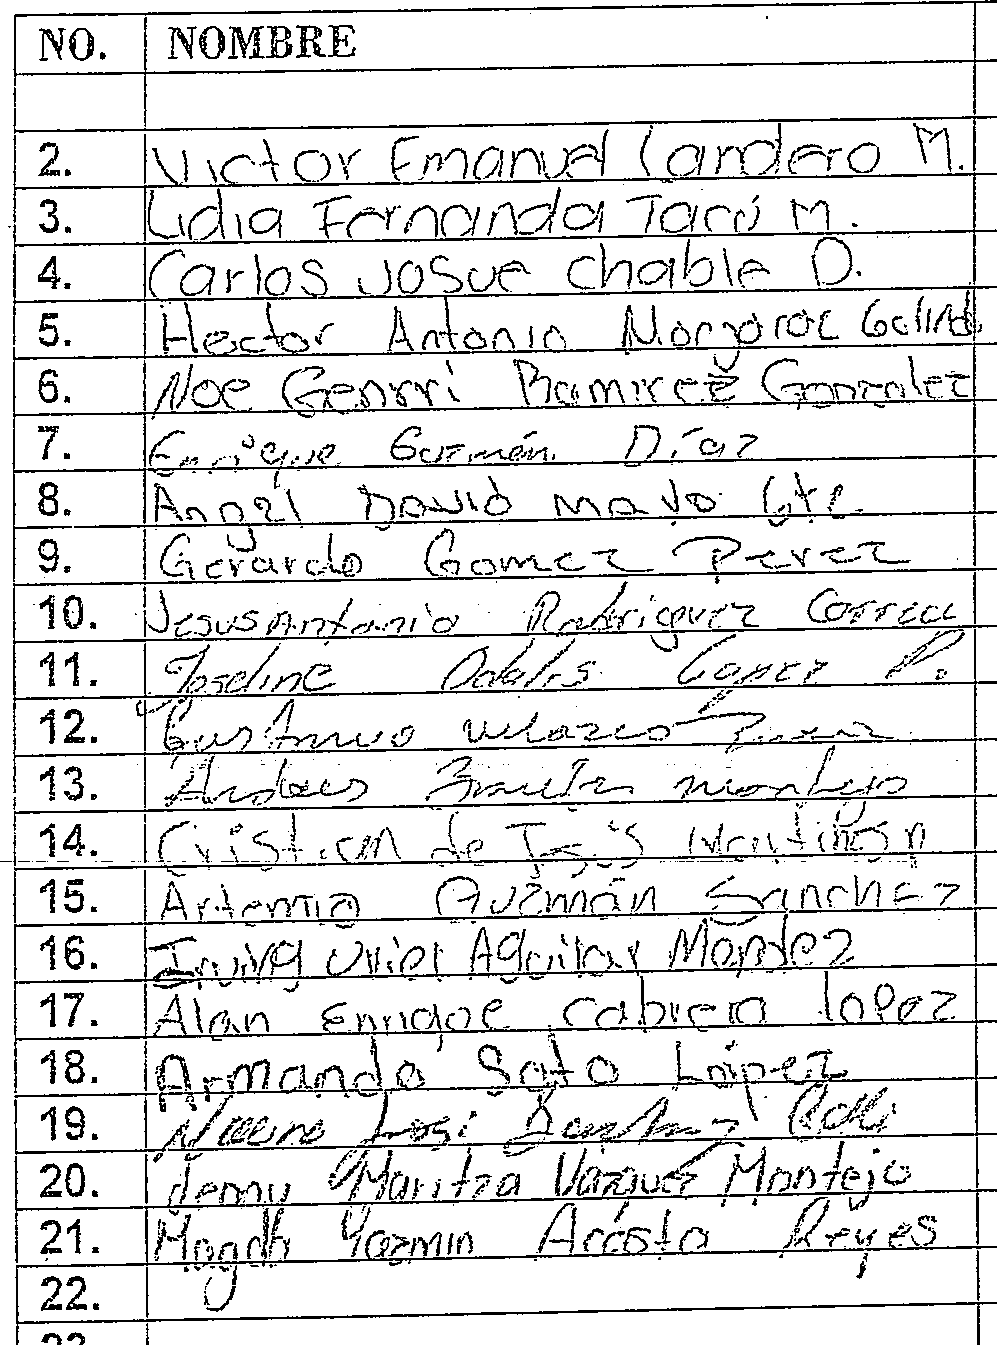 NO. NOMBRE
2. Victor Emanuel Landero M.
3. Lidia Fernanda Tacú M.
4. Carlos Josue Chable D.
5. Hector Antonio
6. Noe Genrri Ramirez Gonzalez
7. Enrique Guzmán Díaz
8. Angel David Mayo
9. Gerardo Gomez Perez
10. Jesus Antonio Rodriguez Correa
11. Joseline Odalis Lopez P.
12. Gustavo Velazco
13. Montejo
14. Cristian de Jesús
15. Artemio Guzmán Sánchez
16. Irving Uriel Aguilar Mendez
17. Alan Enrique Cabrera lopez
18. Armando Soto López
19. José
20. Jenny Maritza Vázquez Montejo
21. Magdi Yazmin Acosta Reyes
22.
23.